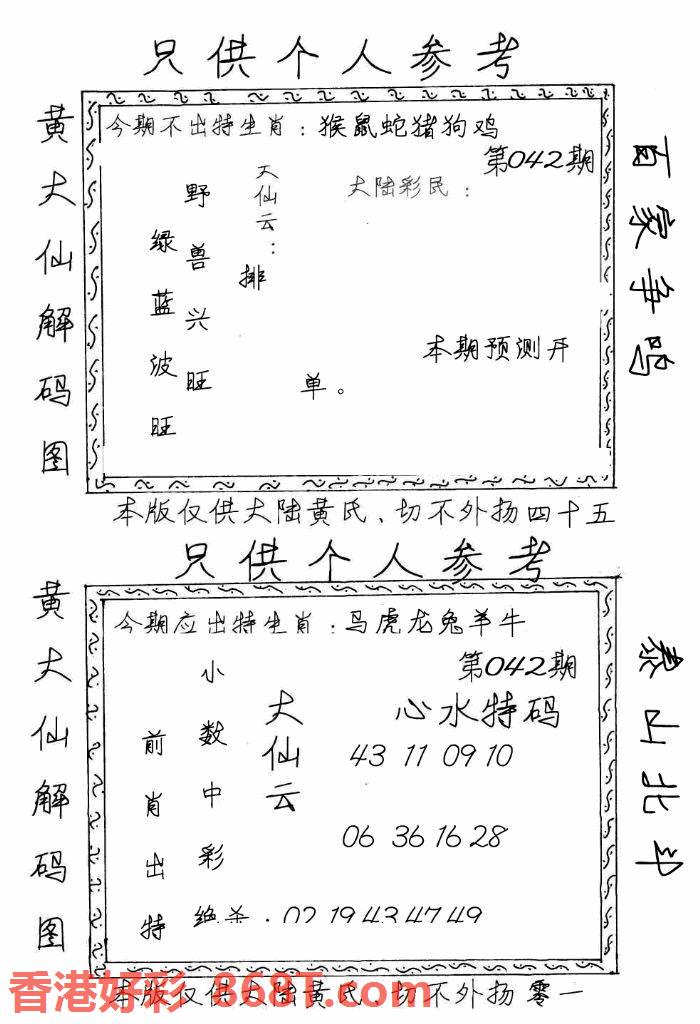 只供个人参考
黄大仙解码图
今期不出特生肖：猴鼠蛇猪狗鸡
第042期
大陆彩民：
天仙云：
排
野兽兴旺
绿蓝波旺
本期预测开
单。
百家争鸣
本版仅供大陆黄氏、切不外扬四十五
只供个人参考
黄大仙解码图
今期应出特生肖：马虎龙兔羊牛
第042期
心水特码
大仙云
小数中彩
前肖出特
43 11 09 10
06 36 16 28
绝杀：02 19 43 47 49
泰山北斗
本版仅供大陆黄氏、切不外扬零一
香港好彩 868T.com